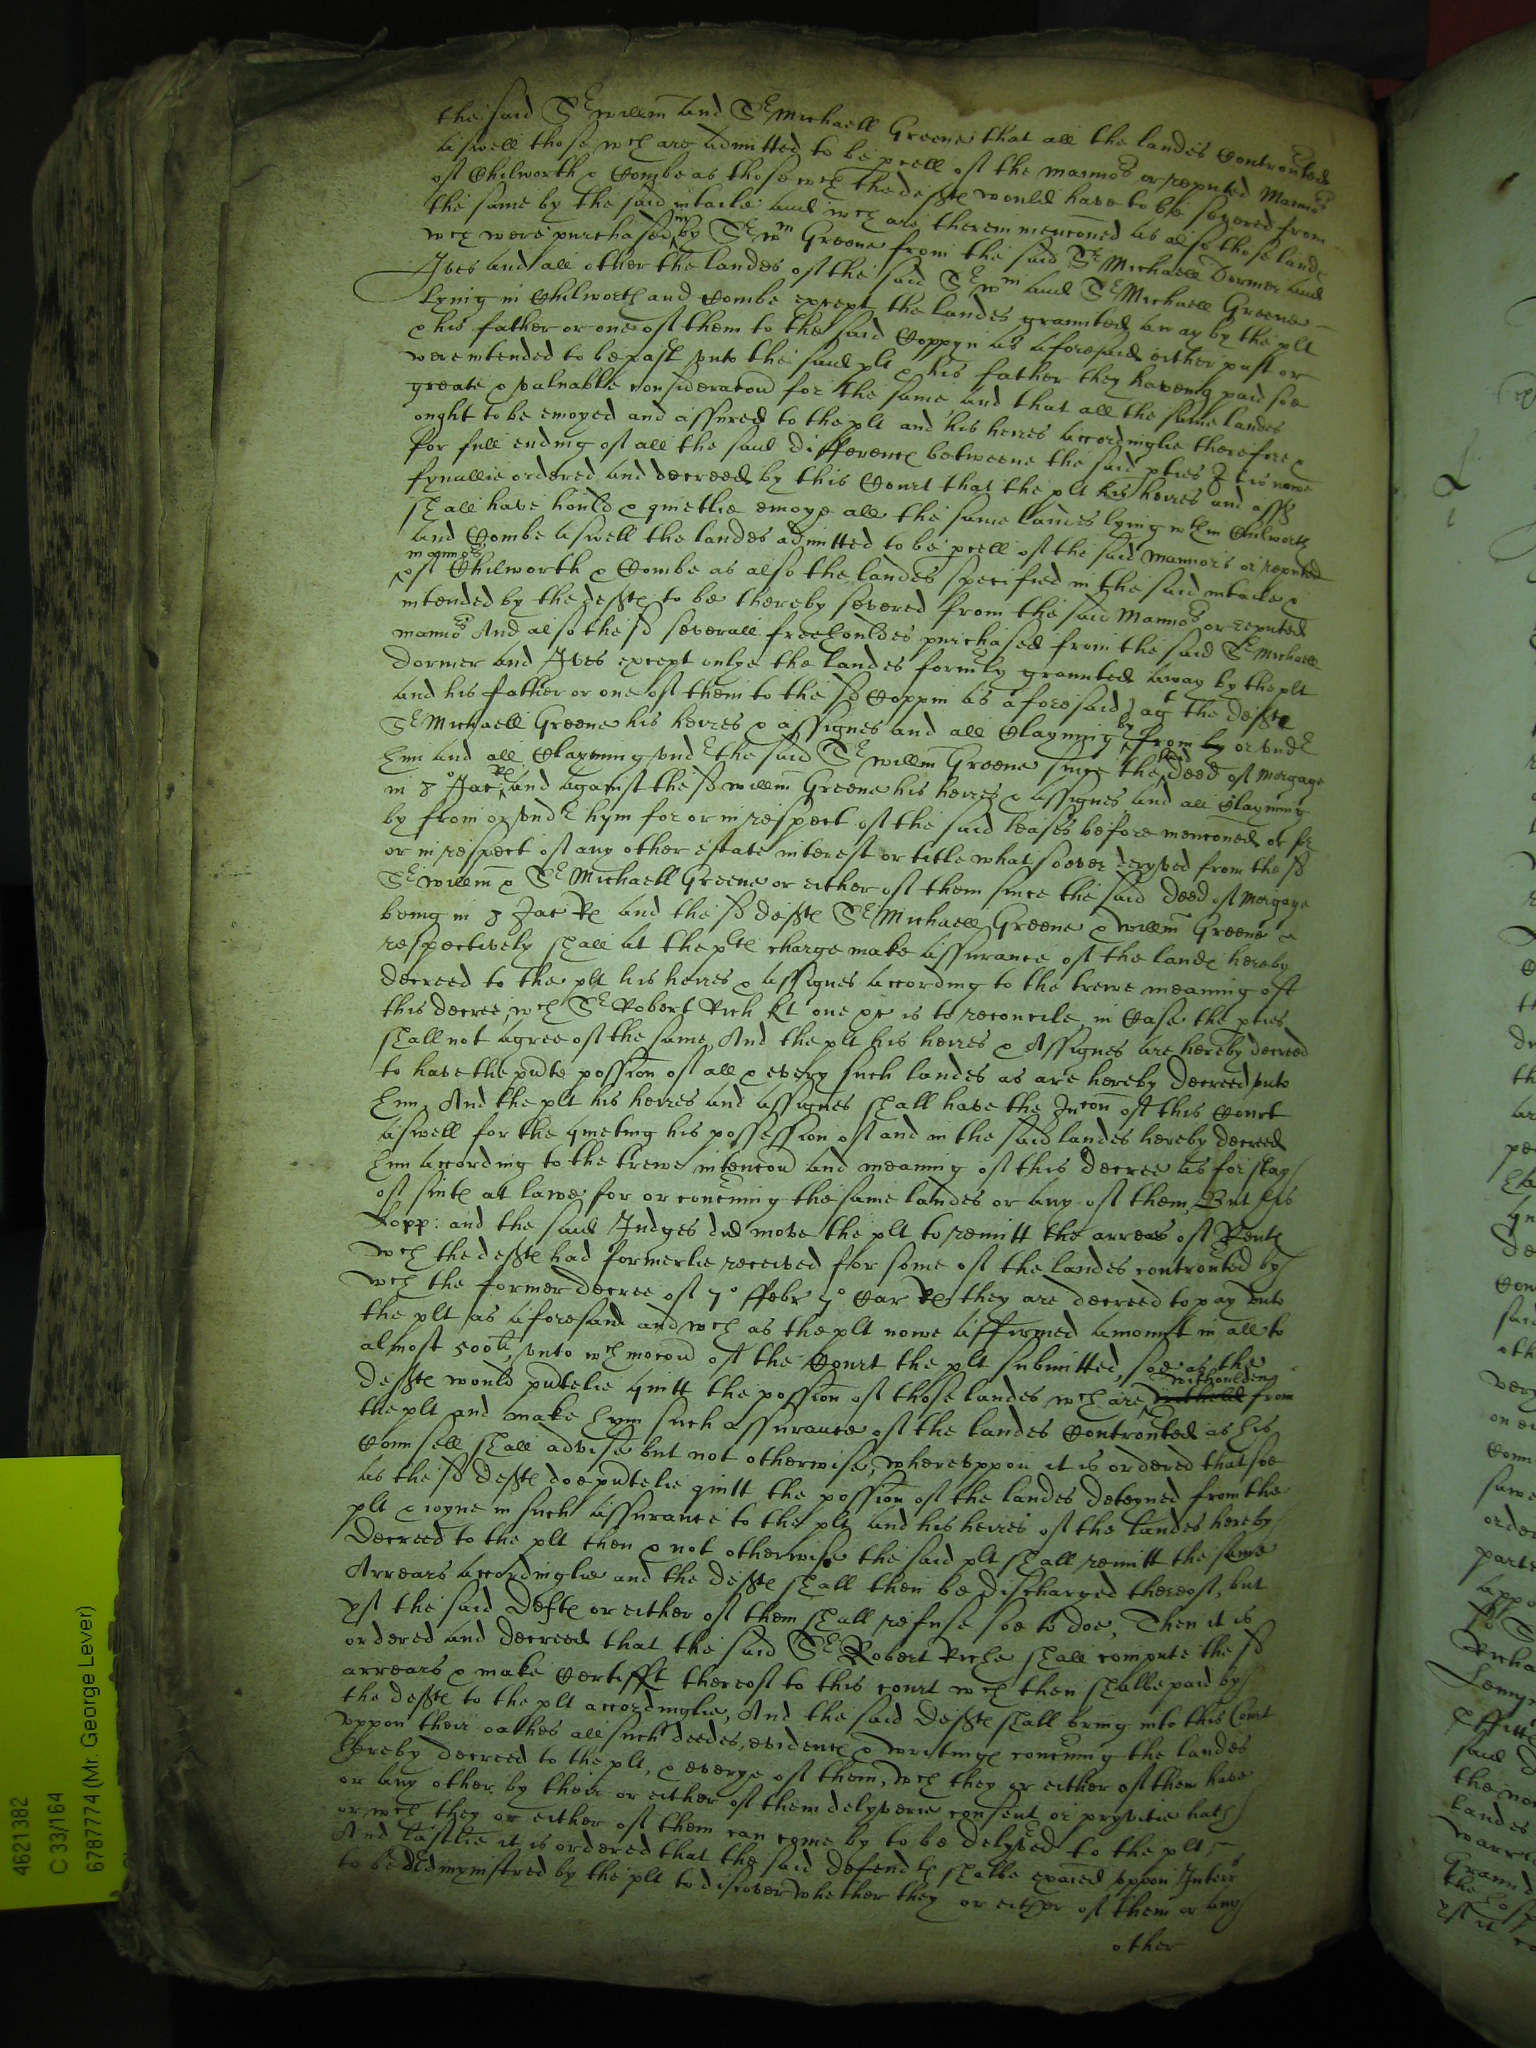 the said Sr Willm and Sr Michaell Greene that all the landes Controuted
aswell those wch are admitted to be pcell of the mannors or reputed Mannors
of Chilworth & Combe as those wch the defts would have to be severed from
the same by the said intacke and wch are therein menconed as also those lands
wch were purchased by Sr Wm Greene from the said Sr Michaell Dormer and
Ives and all other the landes of the said Sr Wm and Sr Michaell Greene
lying in Chilworth and Combe except the landes graunted away by the plt
& his father or one of them to the said Coppyn as aforesaid either past or
were intended to be past unto the said plt & his father they haveing paid soe
greate & valuable consideracon for the same and that all the same landes
ought to be enioyed and assured to the plt and his heires accordinglie therefore &
for full ending of all the said differences betweene the said pties It is nowe
fynallie ordered and decreed by this Court that the plt his heires and assss
shall have hould & quietlie enioye all the same landes lying wthin Chilworth
and Combe aswell the landes admitted to be pcell of the said mannors or reputed
mannors of Chilworth & Combe as also the landes specified in the said intacke &
intended by the defts to be thereby severed from the said Mannors or reputed
mannors And also the sd severall freehouldes purchased from the said Sr Michaell
Dormer and Ives except onlye the landes formrly graunted away by the plt
and his father or one of them to the sd Coppin as aforesaid, agt the defts
Sr Michaell Greene his heires & assignes and all Clayming by from or undr
him and all Clayming undr the said Sr Willm Greene since the said deed of Morgage
in 8o Jac Rs and against the sd Willm Greene his heires & assignes and all clayming
by from or undr hym for or in respect of the said leases before menconed or for
or in respect of any other estate interest or title whatsoever deryved from the sd
Sr Willm & Sr Michaell Greene or either of them since the said deed of Morgage
being in 8 Jac Rs and the sd defts Sr Michaell Greene & Willm Greene
respectively shall at the plts charge make assurance of the landes hereby
decreed to the plt his heires & assignes according to the trewe meaning of
this decree, wch Sr Robert Rich kt one &c is to reconcile in Case the pties
shall not agree of the same, And the plt his heires & Assignes are hereby decreed
to have the pnte possion of all & every such landes as are hereby decreed unto
him, And the plt his heires and assignes shall have the Incon of this Court
aswell for the quieting his possession of and in the said landes hereby decreed
him according to the trewe intencon and meaning of this decree as for stay
of suits at lawe for or concerning the same landes or any of them, But his
Lopp: and the said Judges did move the plt to remitt the arreas of Rents
wch the defts had formerlie received for some of the landes controuted by
wch the former decree of 7o Febr 7o Car Rs they are decreed to pay unto
the plt as aforesaid and wch as the plt nowe affirmed amount in all to
almost 500li, unto wch mocon of the Court the plt submitted, soe as the
defts would pntelie quitt the possion of those landes wch are withoulden from
the plt and make hym such assurance of the landes Controuted as his
Counsell shall advise but not otherwise, whereuppon it is ordered that soe
as the sd defts doe pntelie quitt the possion of the landes deteyned from the
plt & ioyne in such assurance to the plt and his heires of the landes hereby
Decreed to the plt then & not otherwise the said plt shall remitt the same
Arrears accordinglie and the defts shall then be discharged thereof, but
yf the said Defts or either of them shall refuse soe to doe, Then it is
ordered and decreed that the said Sr Robert Riche shall compute the sd
arrears & make Certifft thereof to this court wch then shalbe paid by
the defts to the plt accordinglie, And the said Defts shall bring into this Court
uppon their oathes all such deedes, evidences & writings concerning the landes
hereby decreed to the plt, & everye of them, wch they or either of them have
or any other by their or either of them delyverie consent or pryvitie hath
or wch they or either of them can come by to be delyved to the plt,
And lastlie it is ordered that the said defendts shalbe exaied uppon Interrs
to be Admynistred by the plt to discover whether they or either of them or any
other
4621382
C 33/164
6787774 (Mr. George Lever)